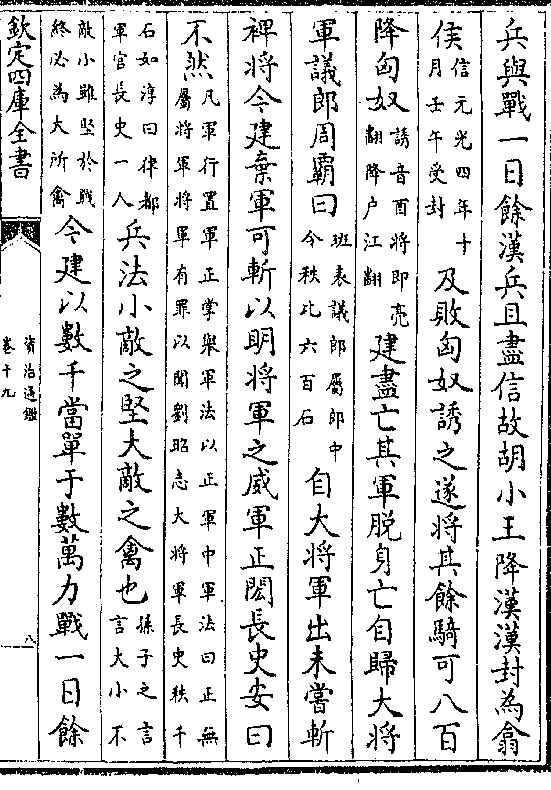 兵與戰一日餘漢兵且盡信故胡小王降漢漢封為翕
侯信元光四年十月壬午受封及敗匈奴誘之遂將其餘騎可八百
降匈奴誘音酉將即亮翻降户江翻建盡亡其軍脱身亡自歸大將
軍議郎周霸曰班表議郎屬郎中令秩比六百石自大將軍出未嘗斬
裨將今建棄軍可斬以明將軍之威軍正閎長史安曰
不然凡軍行置軍正掌舉軍法以正軍中軍法曰正無屬將軍將軍有罪以聞劉昭志大將軍長史秩千
石如淳曰律都軍官長史一人兵法小敵之堅大敵之禽也孫子之言言大小不
敵小雖堅於戰終必為大所禽今建以數千當單于數萬力戰一日餘
欽定四庫全書
資治通鑑
卷十九
八